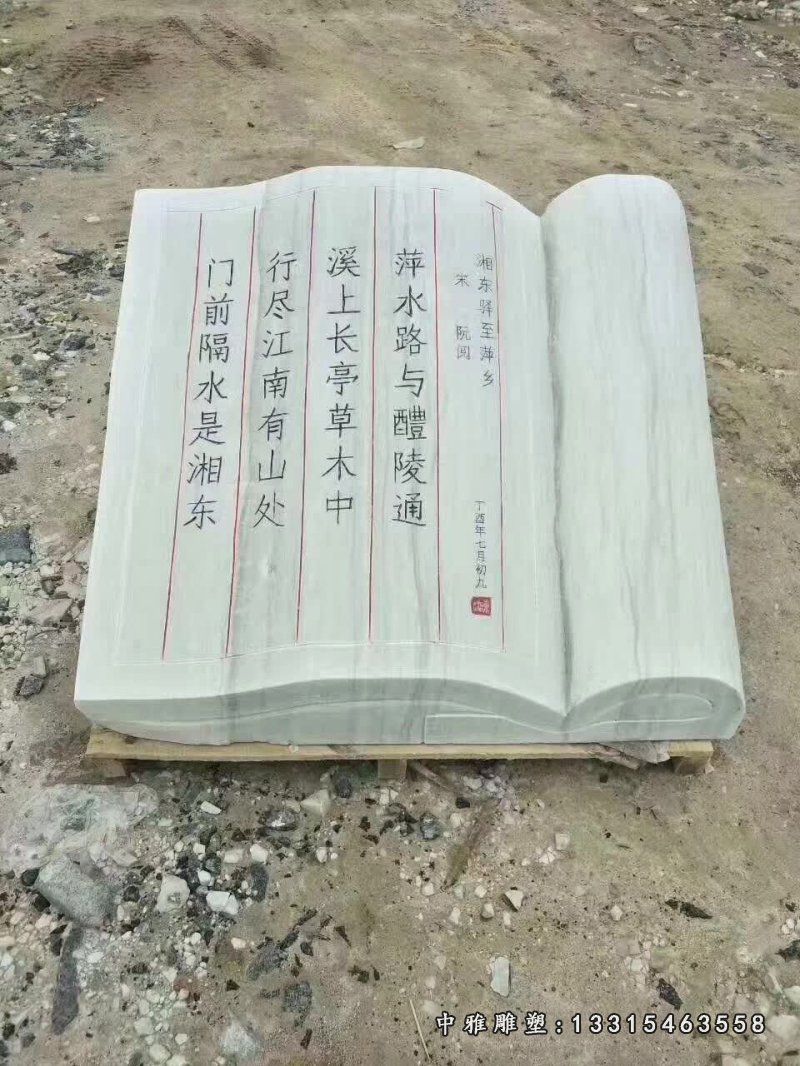 湘东驿至萍乡
宋 阮阅
丁酉年七月初九
萍水路与醴陵通
溪上长亭草木中
行尽江南有山处
门前隔水是湘东
中雅雕塑:13315463558